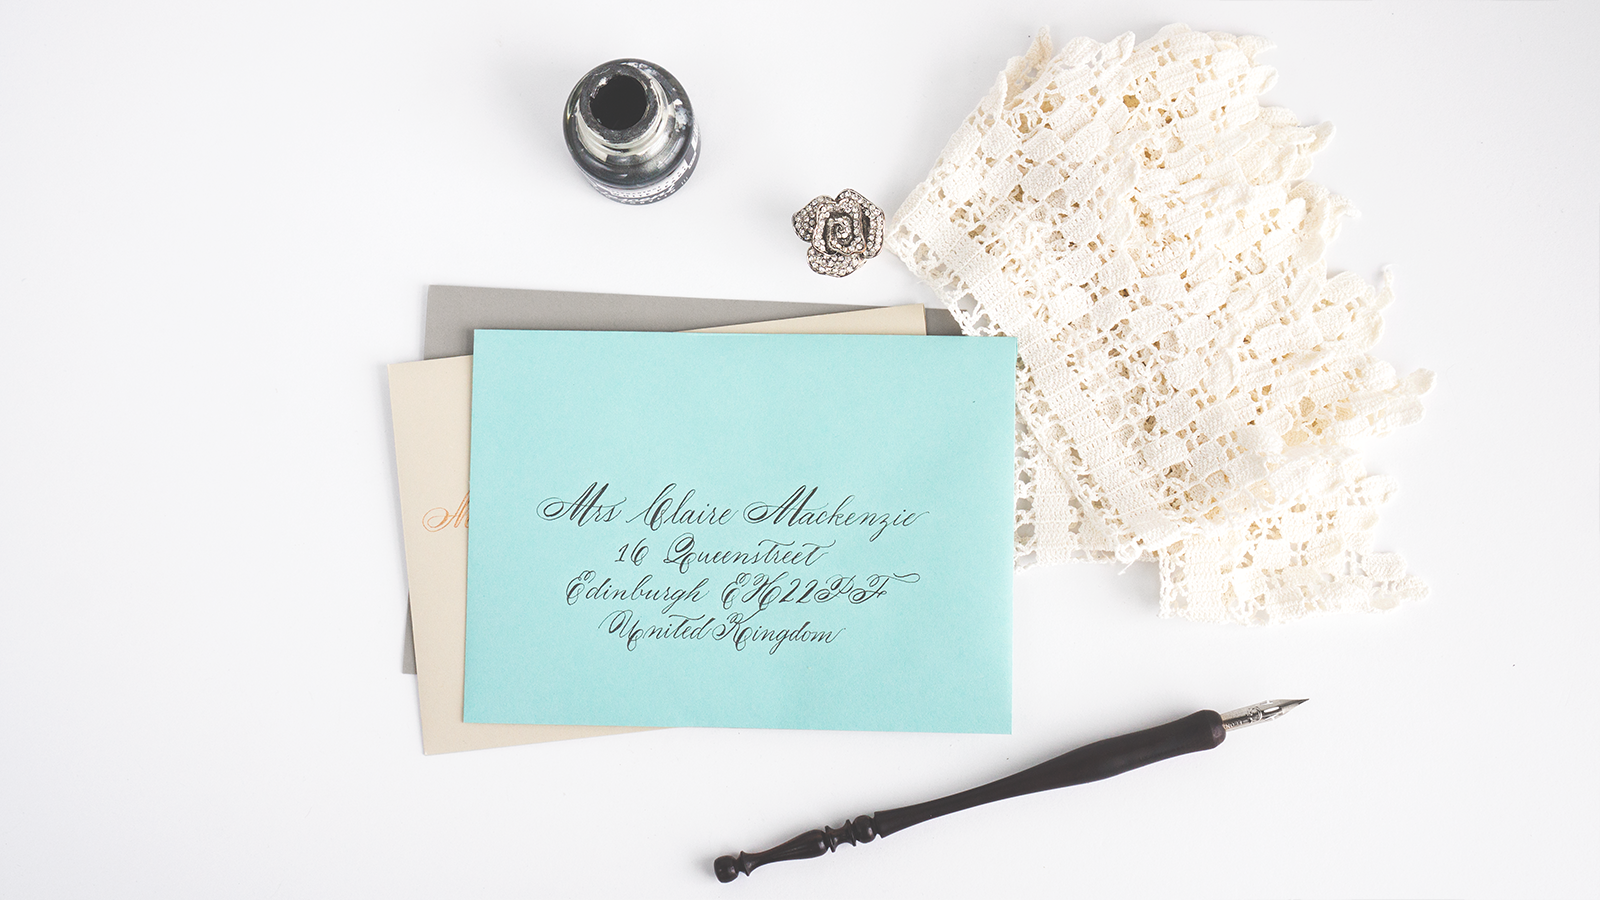 Mrs Claire Mackenzie
16 Queenstreet
Edinburgh EH22PF
United Kingdom